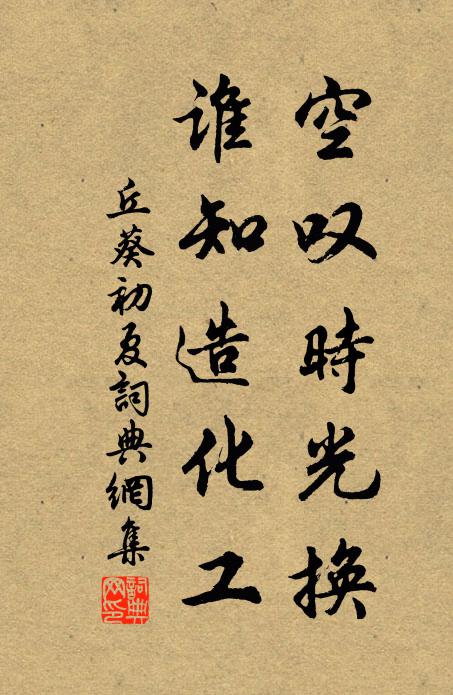 空叹時光換
谁知造化工
丘葵初夏詞典網集
詞典網印